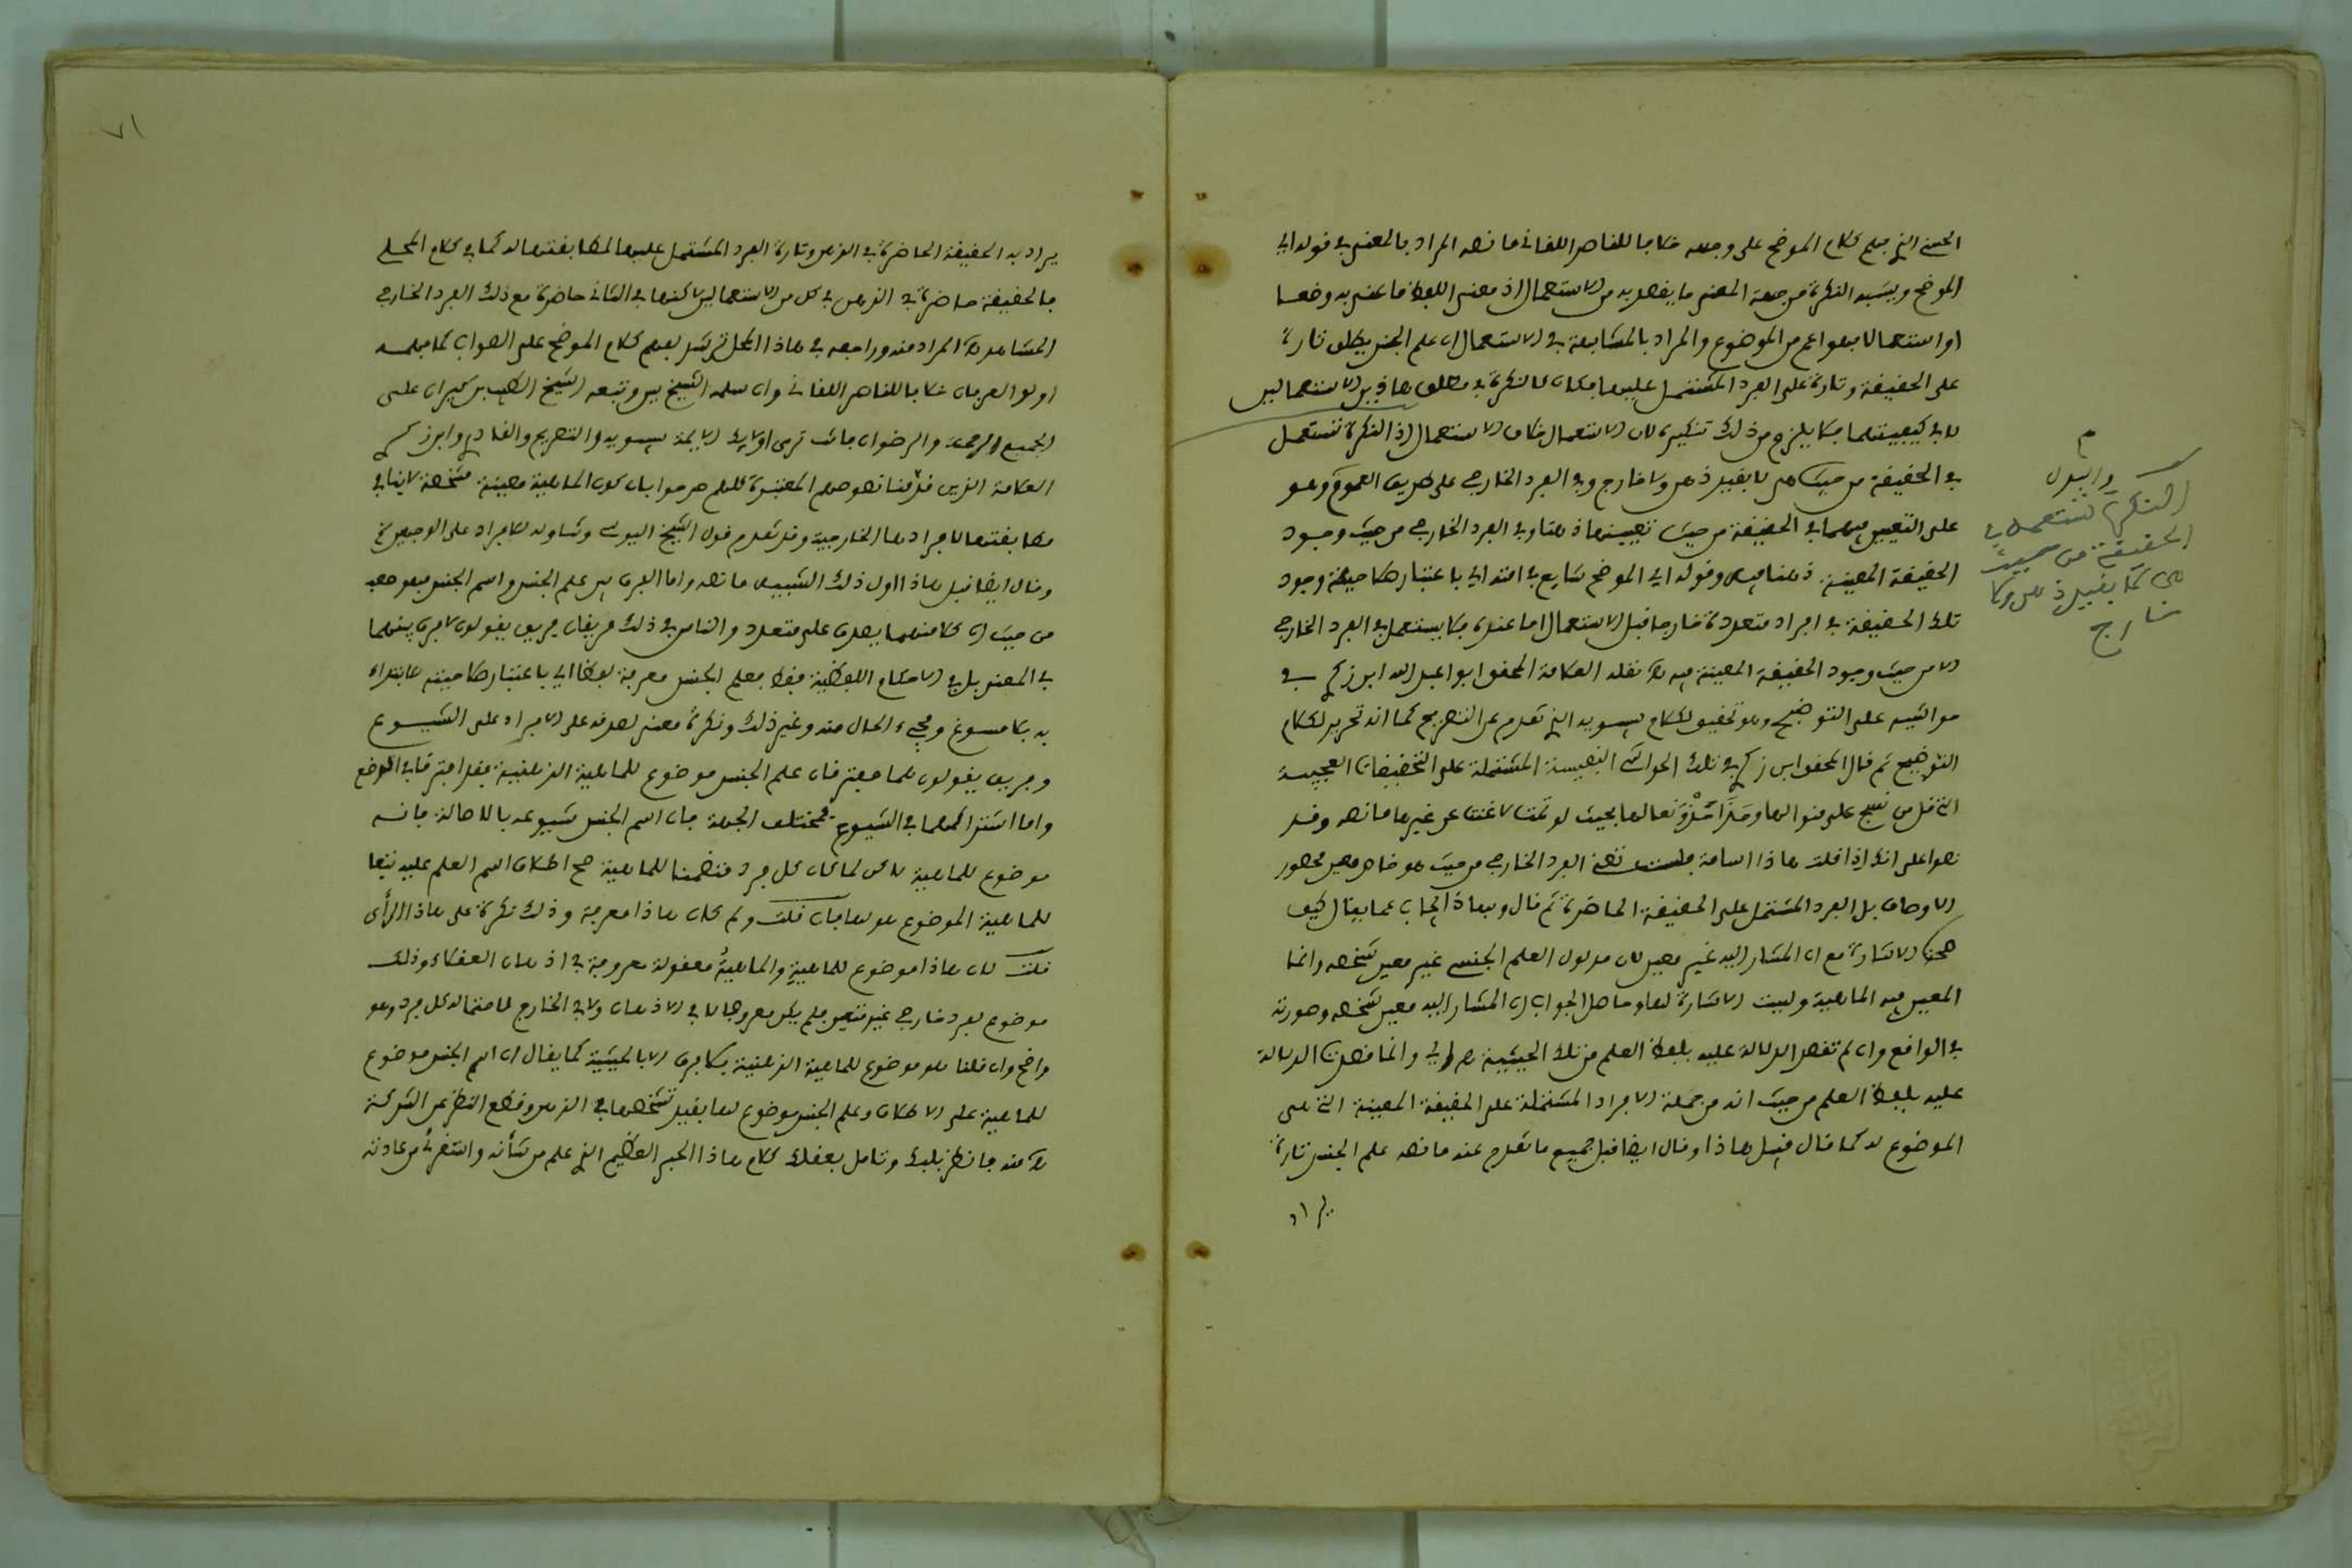 الحسن الذي جعل كلام الموضح على وجهه خلافا للناصر اللقاني ما نصه المراد بالمعنى في قوله اي
الموضح ويشبه النكرة من جهة المعنى ما يقصد به من الاستعمال اذ معنى اللفظ ما عني به وضعا
او استعمالا فهو اعم من الموضوع والمراد بالمشابهة في الاستعمال ان علم الجنس يطلق تارة
على الحقيقة وتارة على الفرد المشتمل عليها فكان كالنكرة في مطلق هاذين الاستعمالين
لا في كيفيتهما فلا يلزم من ذلك تنكيره لان الاستعمال خلاف الاستعمال اذ النكرة تستعمل
في الحقيقة من حيث هي لا بقيد ذهن ولا خارج وفي الفرد الخارجي على طريق العموم وهو
على التعيين فيهما في الحقيقة من حيث تعيينها ذهنا وفي الفرد الخارجي من حيث وجود
الحقيقة المعينة ذهنا فيه وقوله اي الموضح شايع في امته اي باعتبار صلاحية وجود
تلك الحقيقة في افراد متعددة خارجا قبل الاستعمال اما عنده فلا يستعمل في الفرد الخارجي
الا من حيث وجود الحقيقة المعينة فيه نقله العلامة المحقق ابو اعبد الله ابن زكري في
حواشيه على التوضيح وهو تحقيق لكلام سيبويه الذي تقدم عن التصريح كما انه تحرير لكلام
التوضيح ثم قال المحقق ابن زكري في تلك الحواشي النفيسة المشتملة على التحقيقات العجيبة
التي قل من نسج على منوالها بحيث لو تمت لاغنت عن غيرها ما نصه وقد
نصوا على انك اذا قلت هاذا اسامة فلست تعني الفرد الخارجي من حيث هو خاص معين محصور
الاوصاف بل الفرد المشتمل على الحقيقة الحاضرة ثم قال وبهاذا يجاب عما يقال كيف
صحت الاشارة مع ان المشار اليه غير معين لان مدلول العلم الجنسي غير معين شخصه وانما
المعين فيه الماهية وليست الاشارة لها وحاصل الجواب ان المشار اليه معين شخصه وصورته
في الواقع وان لم تقصد الدلالة عليه بلفظ العلم من تلك الحيثية وانما قصدت الدلالة
عليه بلفظ العلم من حيث انه من جملة الافراد المشتملة على الحقيقة المعينة التي هي
الموضوع له كما قال قبل هاذا وقال ايضا قبل جميع ما تقدم عنه ما نصه علم الجنس تارة
يراد
م
النكرة تستعمل في
الحقيقة من حيث
هي لا بقيد ذهن ولا
خارج
٧١
يراد به الحقيقة الحاضرة في الذهن وتارة الفرد المشتمل عليها لمطابقتها له كما في كلام المحلي
فالحقيقة حاضرة في الذهن في كل من الاستعمالين لاكنها في الثاني حاضرة مع ذلك الفرد الخارجي
المشاهد المراد منه وراجعه في هاذا المحل ترشد بفهم كلام الموضح على الصواب كما فهمه
اولو العرفان خلافا للناصر اللقاني وان سلمه الشيخ يس وتبعه الشيخ الطيب بن كيران على
الجميع الرحمة والرضوان فانت ترى اولايك الايمة سيبويه والتصريح والفاسي وابن زكري
العلامة الذين قدمنا نصوصهم المعتبرة كلهم صرحوا بان كون الماهية معينة مشخصة لا ينافي
مطابقتها لافرادها الخارجية وقد تقدم قول الشيخ اليوسي وتناوله للافراد على الوجهين الخ
وقال ايضا قبل هاذا اول ذلك التنبيه ما نصه واما الفرق بين علم الجنس واسم الجنس فهو صعب
من حيث ان كلا منهما يصدق على متعدد والناس في ذلك فريقان فريق يقولون لا فرق بينهما
في المعنى بل في الاحكام اللفظية فقط فعلم الجنس معرفة لفظا اي باعتبار صلاحيته للابتداء
به بلا مسوغ ومجيء الحال منه وغير ذلك ونكرة معنى لصدقه على الافراد على الشيوع
وفريق يقولون هما مفترقان علم الجنس موضوع للماهية الذهنية فقد افترقا في الوضع
واما اشتراكهما في الشيوع فمختلف الجهة فان اسم الجنس شيوعه بالاصالة فانه
موضوع للماهية لاكن لما كان كل فرد متضمنا للماهية صح اطلاق اسم العلم عليه تبعا
للماهية الموضوع هو لها فان قلت ولم كان هاذا معرفة وذلك نكرة على هاذا الرأي
قلت لان هاذا موضوع للماهية والماهية معقولة معروفة في اذهان العقلاء وذلك
موضوع لفرد خارجي غير متعين فلم يكن معروفا لا في الاذهان ولا في الخارج لاحتماله كل فرد وهو
واضح وان قلنا هو موضوع للماهية الذهنية فلا فرق الا بالحيثية كما يقال ان اسم الجنس موضوع
للماهية على الاطلاق وعلم الجنس موضوع لها بقيد تشخصها في الذهن وقطع النظر عن الشركة
منه فانظر بلبك وتامل بعقلك كلام هاذا الحبر العظيم الذي علم من شأنه واستقرئ من عادته